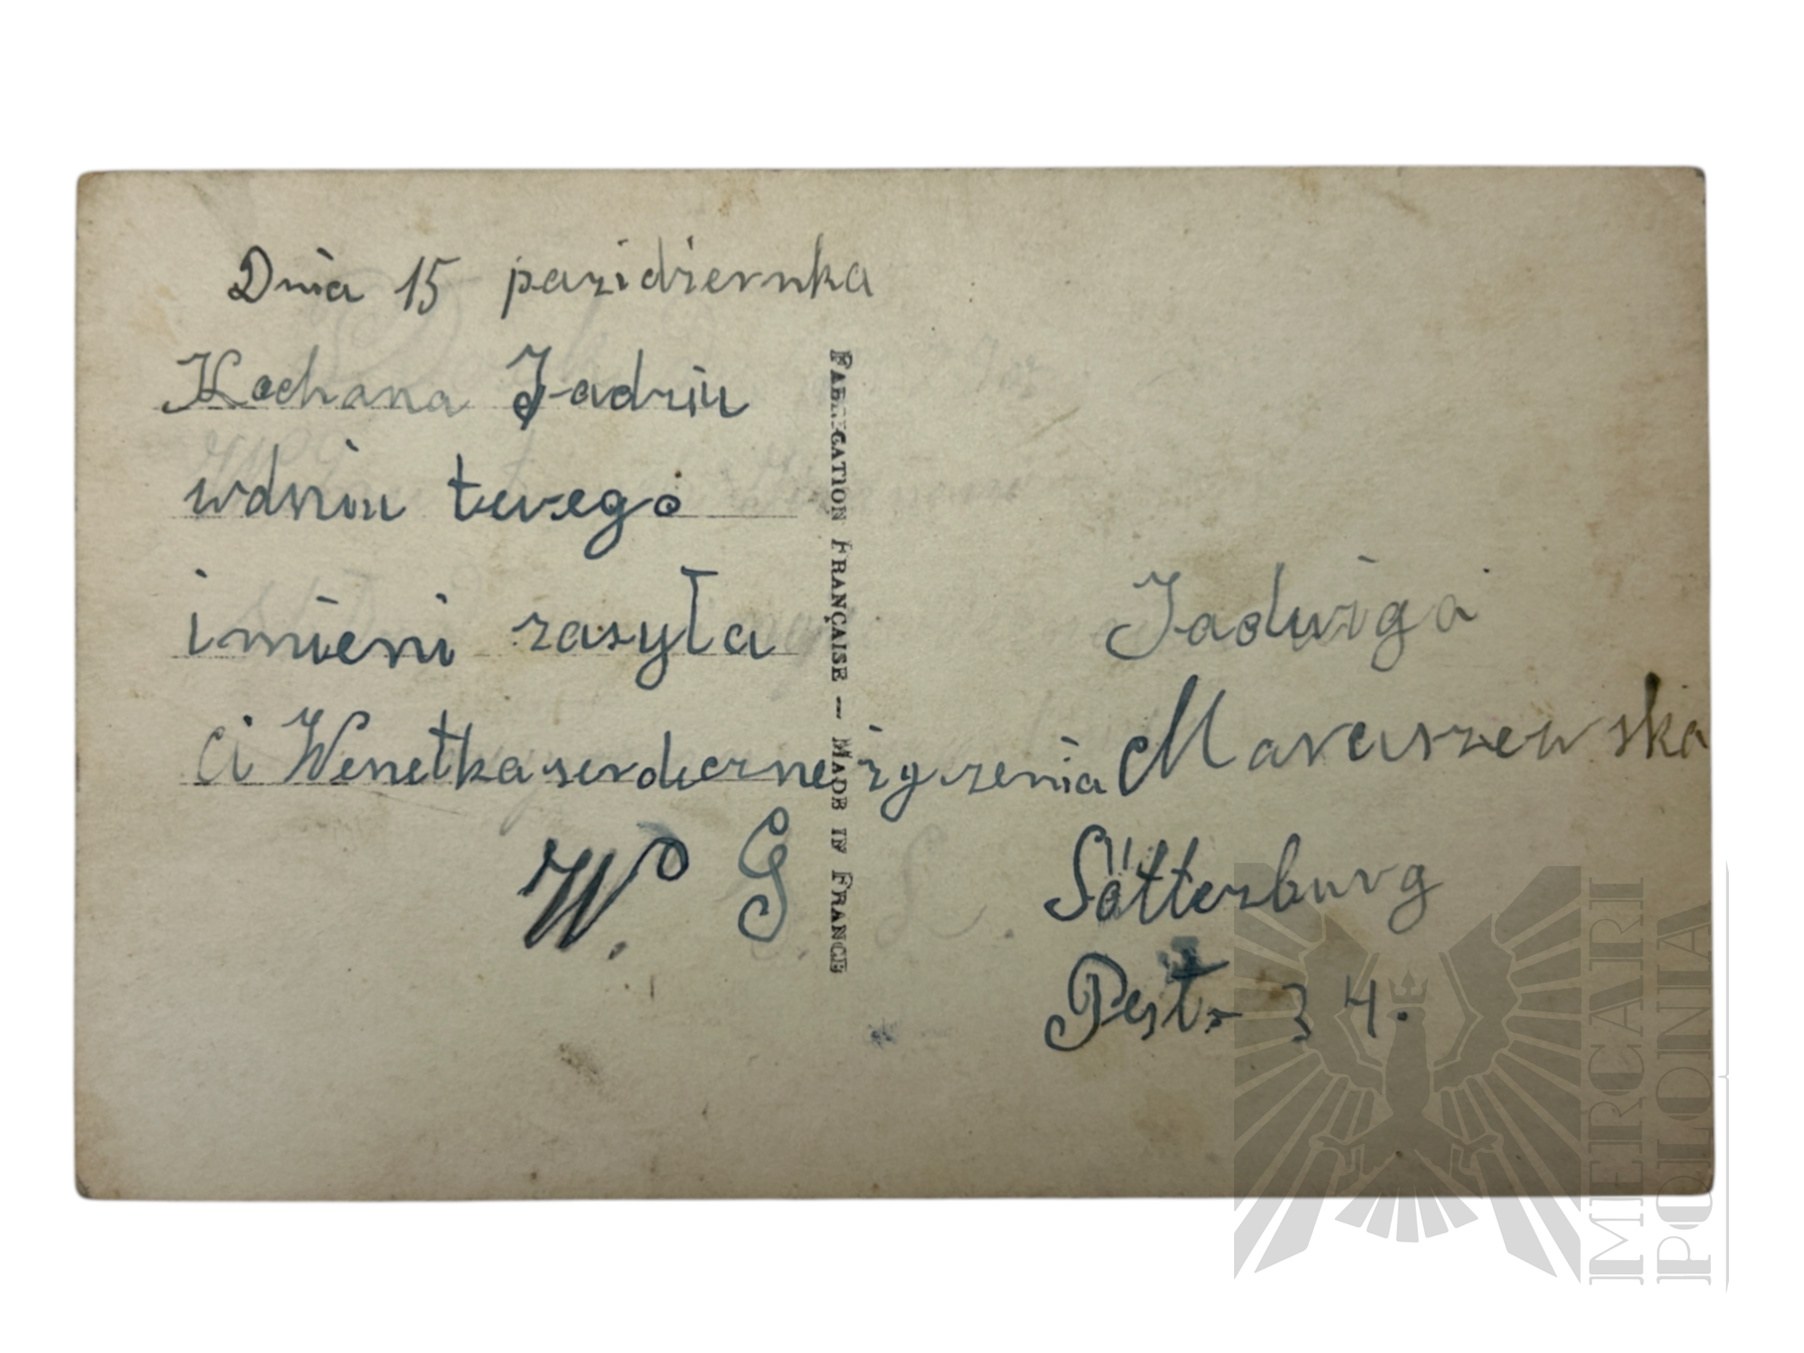 Dnia 15 pazidziernka
Kochana Jadziu
wdniu twego
imieni zasyła
Ci Wenetka serdeczne życzenia
W. G
FABRICATION FRANÇAISE — MADE IN FRANCE
Jadwiga
Maruszewska
Sötterburg
Pest. 34.
MERCARI
POLONIA